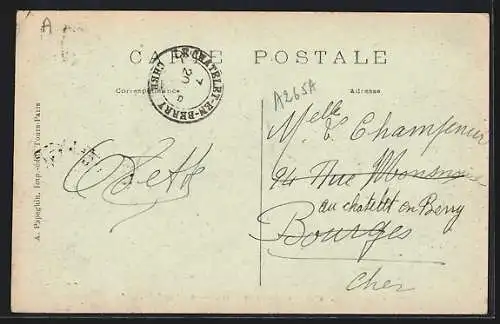 A
CARTE POSTALE
LE CHATELET-EN-BERRY
CHER
7
20
Correspondance
Adresse
A265A
A. Papeghin, Imp. Tours-Paris
Odette
Melle Champeneur
94 Rue
au chatelet en Berry
Bourges
Cher